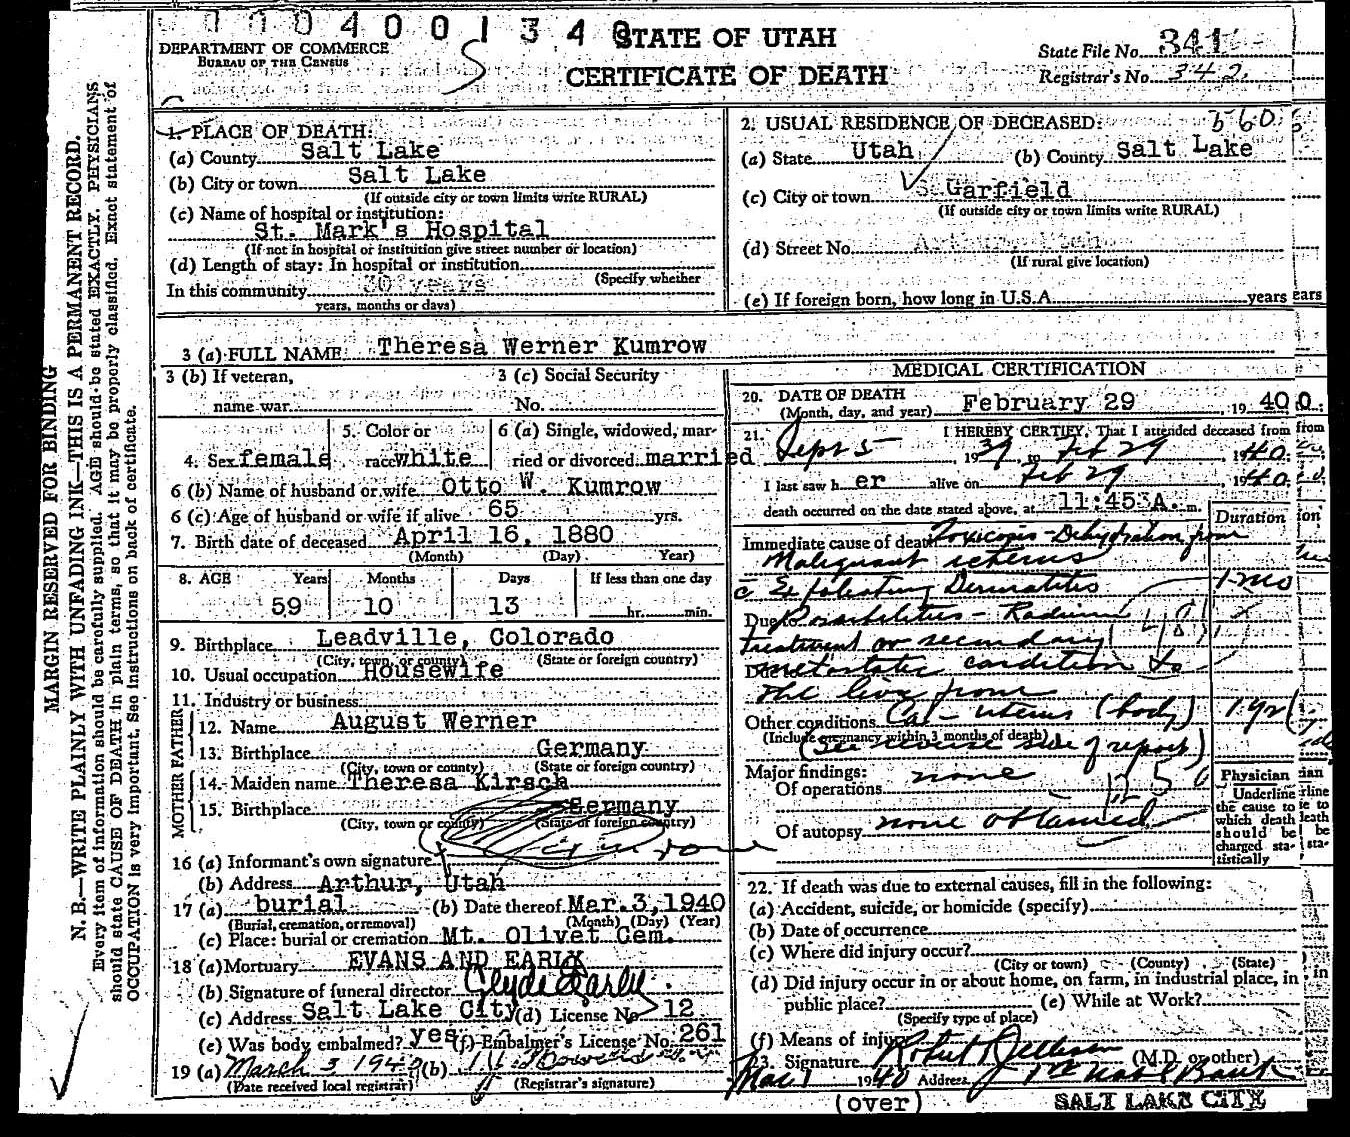 0004001340
STATE OF UTAH
CERTIFICATE OF DEATH
DEPARTMENT OF COMMERCE
BUREAU OF THE CENSUS
State File No. 341
Registrar's No. 342
MARGIN RESERVED FOR BINDING
N. B.—WRITE PLAINLY WITH UNFADING INK—THIS IS A PERMANENT RECORD.
Every item of information should be carefully supplied. AGE should be stated EXACTLY. PHYSICIANS
should state CAUSE OF DEATH in plain terms, so that it may be properly classified. Exact statement of
OCCUPATION is very important. See instructions on back of certificate.
1. PLACE OF DEATH:
(a) County Salt Lake
(b) City or town Salt Lake
(If outside city or town limits write RURAL)
(c) Name of hospital or institution:
St. Mark's Hospital
(If not in hospital or institution give street number or location)
(d) Length of stay: In hospital or institution
(Specify whether
In this community 30 years
years, months or days)
2. USUAL RESIDENCE OF DECEASED:
(a) State Utah (b) County Salt Lake
(c) City or town Garfield
(If outside city or town limits write RURAL)
(d) Street No.
(If rural give location)
(e) If foreign born, how long in U.S.A. years
3 (a) FULL NAME Theresa Werner Kumrow
3 (b) If veteran, name war
3 (c) Social Security No.
4. Sex female
5. Color or race white
6 (a) Single, widowed, married or divorced married
6 (b) Name of husband or wife Otto W. Kumrow
6 (c) Age of husband or wife if alive 65 yrs.
7. Birth date of deceased April 16, 1880
(Month) (Day) Year)
8. AGE Years Months Days If less than one day
59 10 13 hr. min.
9. Birthplace Leadville, Colorado
(City, town, or county) (State or foreign country)
10. Usual occupation Housewife
11. Industry or business
FATHER
12. Name August Werner
13. Birthplace Germany
(City, town or county) (State or foreign country)
MOTHER
14. Maiden name Theresa Kirsch
15. Birthplace Germany
(City, town or county) (State or foreign country)
16 (a) Informant's own signature
(b) Address Arthur, Utah
17 (a) burial (b) Date thereof Mar.3,1940
(Burial, cremation, or removal) (Month) (Day) (Year)
(c) Place: burial or cremation Mt. Olivet Cem.
18 (a) Mortuary EVANS AND EARLY
(b) Signature of funeral director Clyde Early
(c) Address Salt Lake City (d) License No. 12
(e) Was body embalmed? yes (f) Embalmer's License No. 261
19 (a) March 3 1940 (b)
(Date received local registrar) (Registrar's signature)
MEDICAL CERTIFICATION
20. DATE OF DEATH
(Month, day, and year) February 29, 1940
21. I HEREBY CERTIFY, That I attended deceased from
Sept 5 1939 to Feb 29 1940.
I last saw her alive on Feb 29 1940
death occurred on the date stated above, at 11:45 A. m.
Duration
Immediate cause of death Toxicosis - Dehydration from
Malignant icterus
c̄ Exfoliating Dermatitis 1 mo
Due to - Radium
treatment or secondary
Due to metastatic condition to
the liver from
Other conditions Ca - uterus (body) 1 yr
(Include pregnancy within 3 months of death)
(See reverse side of report)
Major findings:
Of operations none
Of autopsy none obtained
Physician
Underline
the cause to
which death
should be
charged sta-
tistically
22. If death was due to external causes, fill in the following:
(a) Accident, suicide, or homicide (specify)
(b) Date of occurrence
(c) Where did injury occur?
(City or town) (County) (State)
(d) Did injury occur in or about home, on farm, in industrial place, in
public place? (e) While at Work?
(Specify type of place)
(f) Means of injury
23. Signature Robert (M.D. or other)
Mar 1 1940 Address
(over) SALT LAKE CITY